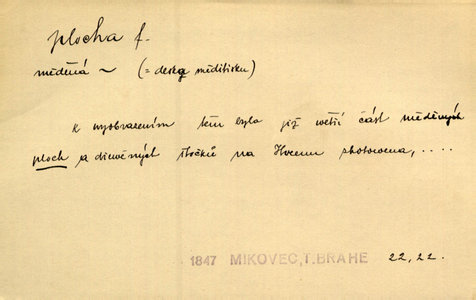 plocha f.
měděná ~ (= deska měditisku)
k wyobrazením těm byla již wětší část měděných
ploch a dřewěných štočků na Hwenu zhotowena, ....
1847 MIKOVEC, T. BRAHE 22, 22.